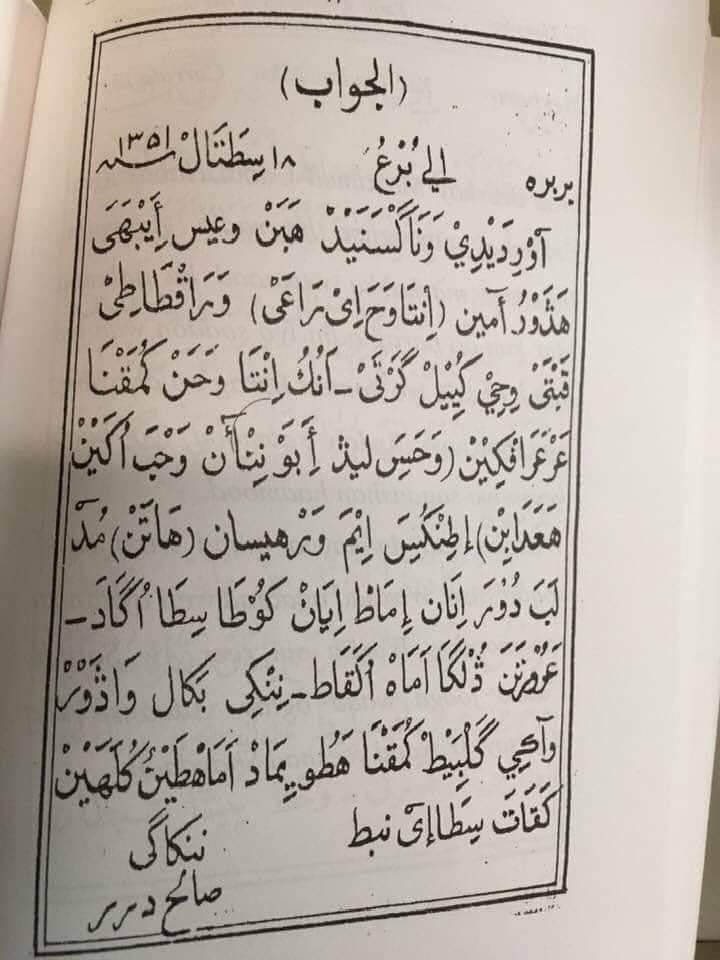 (الجواب)
بربره الي بُرْعُ ١٨ سِطَتَالْ سنه ١٣٥١
آوْرِ دَيْدِيْ وَنَاگْسَنَيْدْ هَبَنْ وعيس أَيْبَهَى
هَدَوْرُ آمين (إِنْتَا وَحَ اِىْ رَاعَىْ) وَرَاقْطَاطِىْ
قَبْتَىْ وِحِيْ كِيِيلْ گَرْتَىْ - اَنُكُ اِنْتَا وَحَنْ كُمَقْنَا
عَرْعَرَافْكِيْنْ (وَحَسَ ليدْ أَبَوْ نِنْأَنْ وَحْبَ اُكَيْنْ
هَعَدَابِنْ) إطِنْكَسِ اِيْمَ وَرْهيسان (هَاتَنْ) مُدْ
لَبَ دُوْرَ اِنَان إِمَاطْ اِيَانْ كَوُطَا سِطَا اُگَادَ -
ڎُلْكَا اَمَاهْ اُلَقَاط - نِنْكِى بَكَال وَادَوْرْ
وآكِي گَلْبَيْطْ كُمَقْنَا هَطُو يِمَادْ اَمَاهْطَيْئُ كُلَهَيْنْ
كَقَاتَ سِطَا إِىْ نبط
ننكاگى
صالح درير